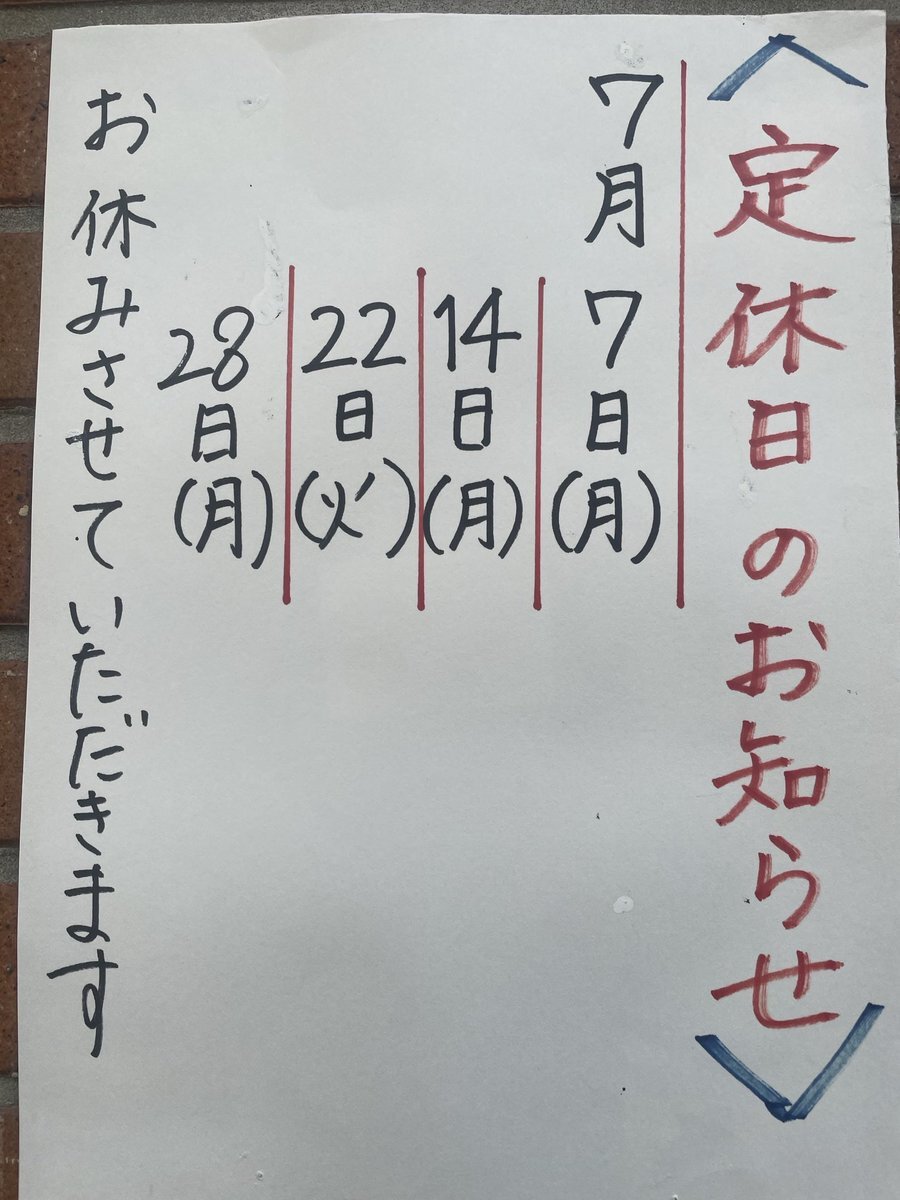 〈定休日のお知らせ〉
7月 7日(月)
14日(月)
22日(火)
28日(月)
お休みさせていただきます